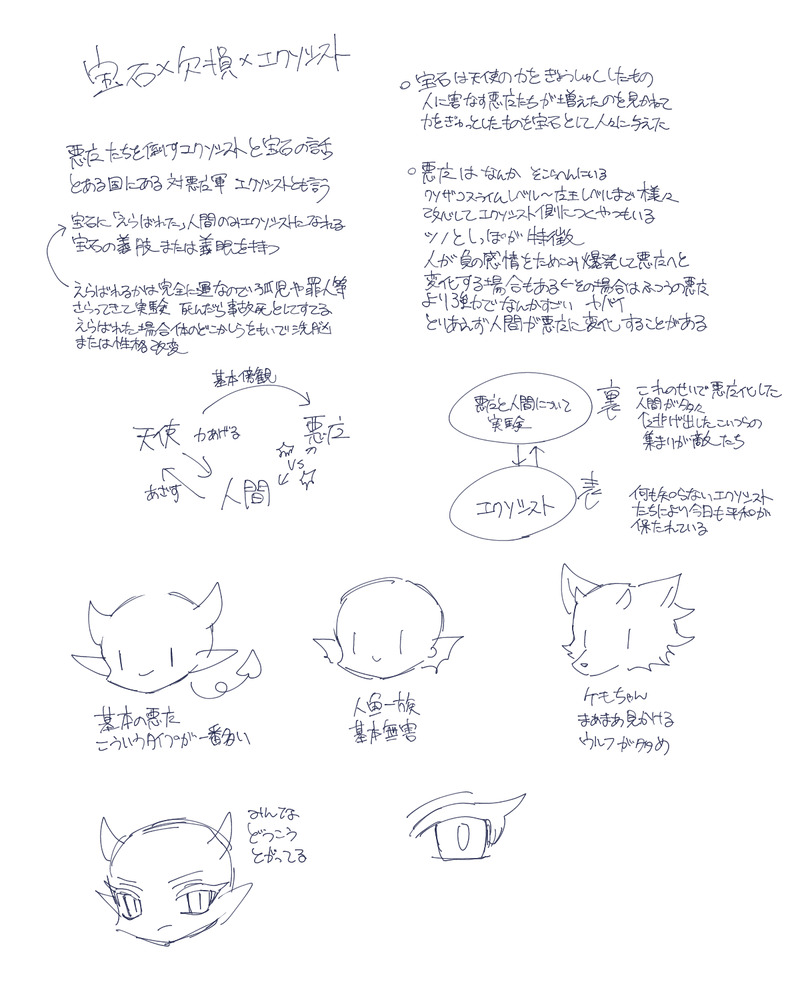 宝石×欠損×エクソシスト
悪魔たちを倒すエクソシストと宝石の話
とある国にある対悪魔軍 エクソシストとも言う
宝石に「えらばれた」人間のみエクソシストになれる
宝石の義肢または義眼を持つ
えらばれるかは完全に運なので孤児や罪人等
さらってきて実験 死んだら事故死としてすてる
えらばれた場合体のどこかしらをもいで洗脳
または性格改変
宝石は天使の力をぎょうしゅくしたもの
人に害なす悪魔たちが増えたのを見かねて
力をぎゅっとしたものを宝石として人々に与えた
悪魔はなんか そこらへんにいる
クソザコスライムレベル～魔王レベルまで様々
改心してエクソシスト側につくやつもいる
ツノとしっぽが特徴
人が負の感情をためこみ爆発して悪魔へと
変化する場合もある←その場合はふつうの悪魔
より強力でなんかすごい ヤバイ
とりあえず人間が悪魔に変化することがある
基本傍観
天使 力あげる 悪魔
VS
あざす 人間
悪魔と人間について
実験
裏
これのせいで悪魔化した
人間が多々
逃げ出したこいつらの
集まりが敵たち
エクソシスト
表
何も知らないエクソシスト
たちにより今日も平和が
保たれている
基本の悪魔
こういうタイプが一番多い
人魚一族
基本無害
ケモちゃん
まあまあ見かける
ウルフが多め
みんな
どうこう
とがってる